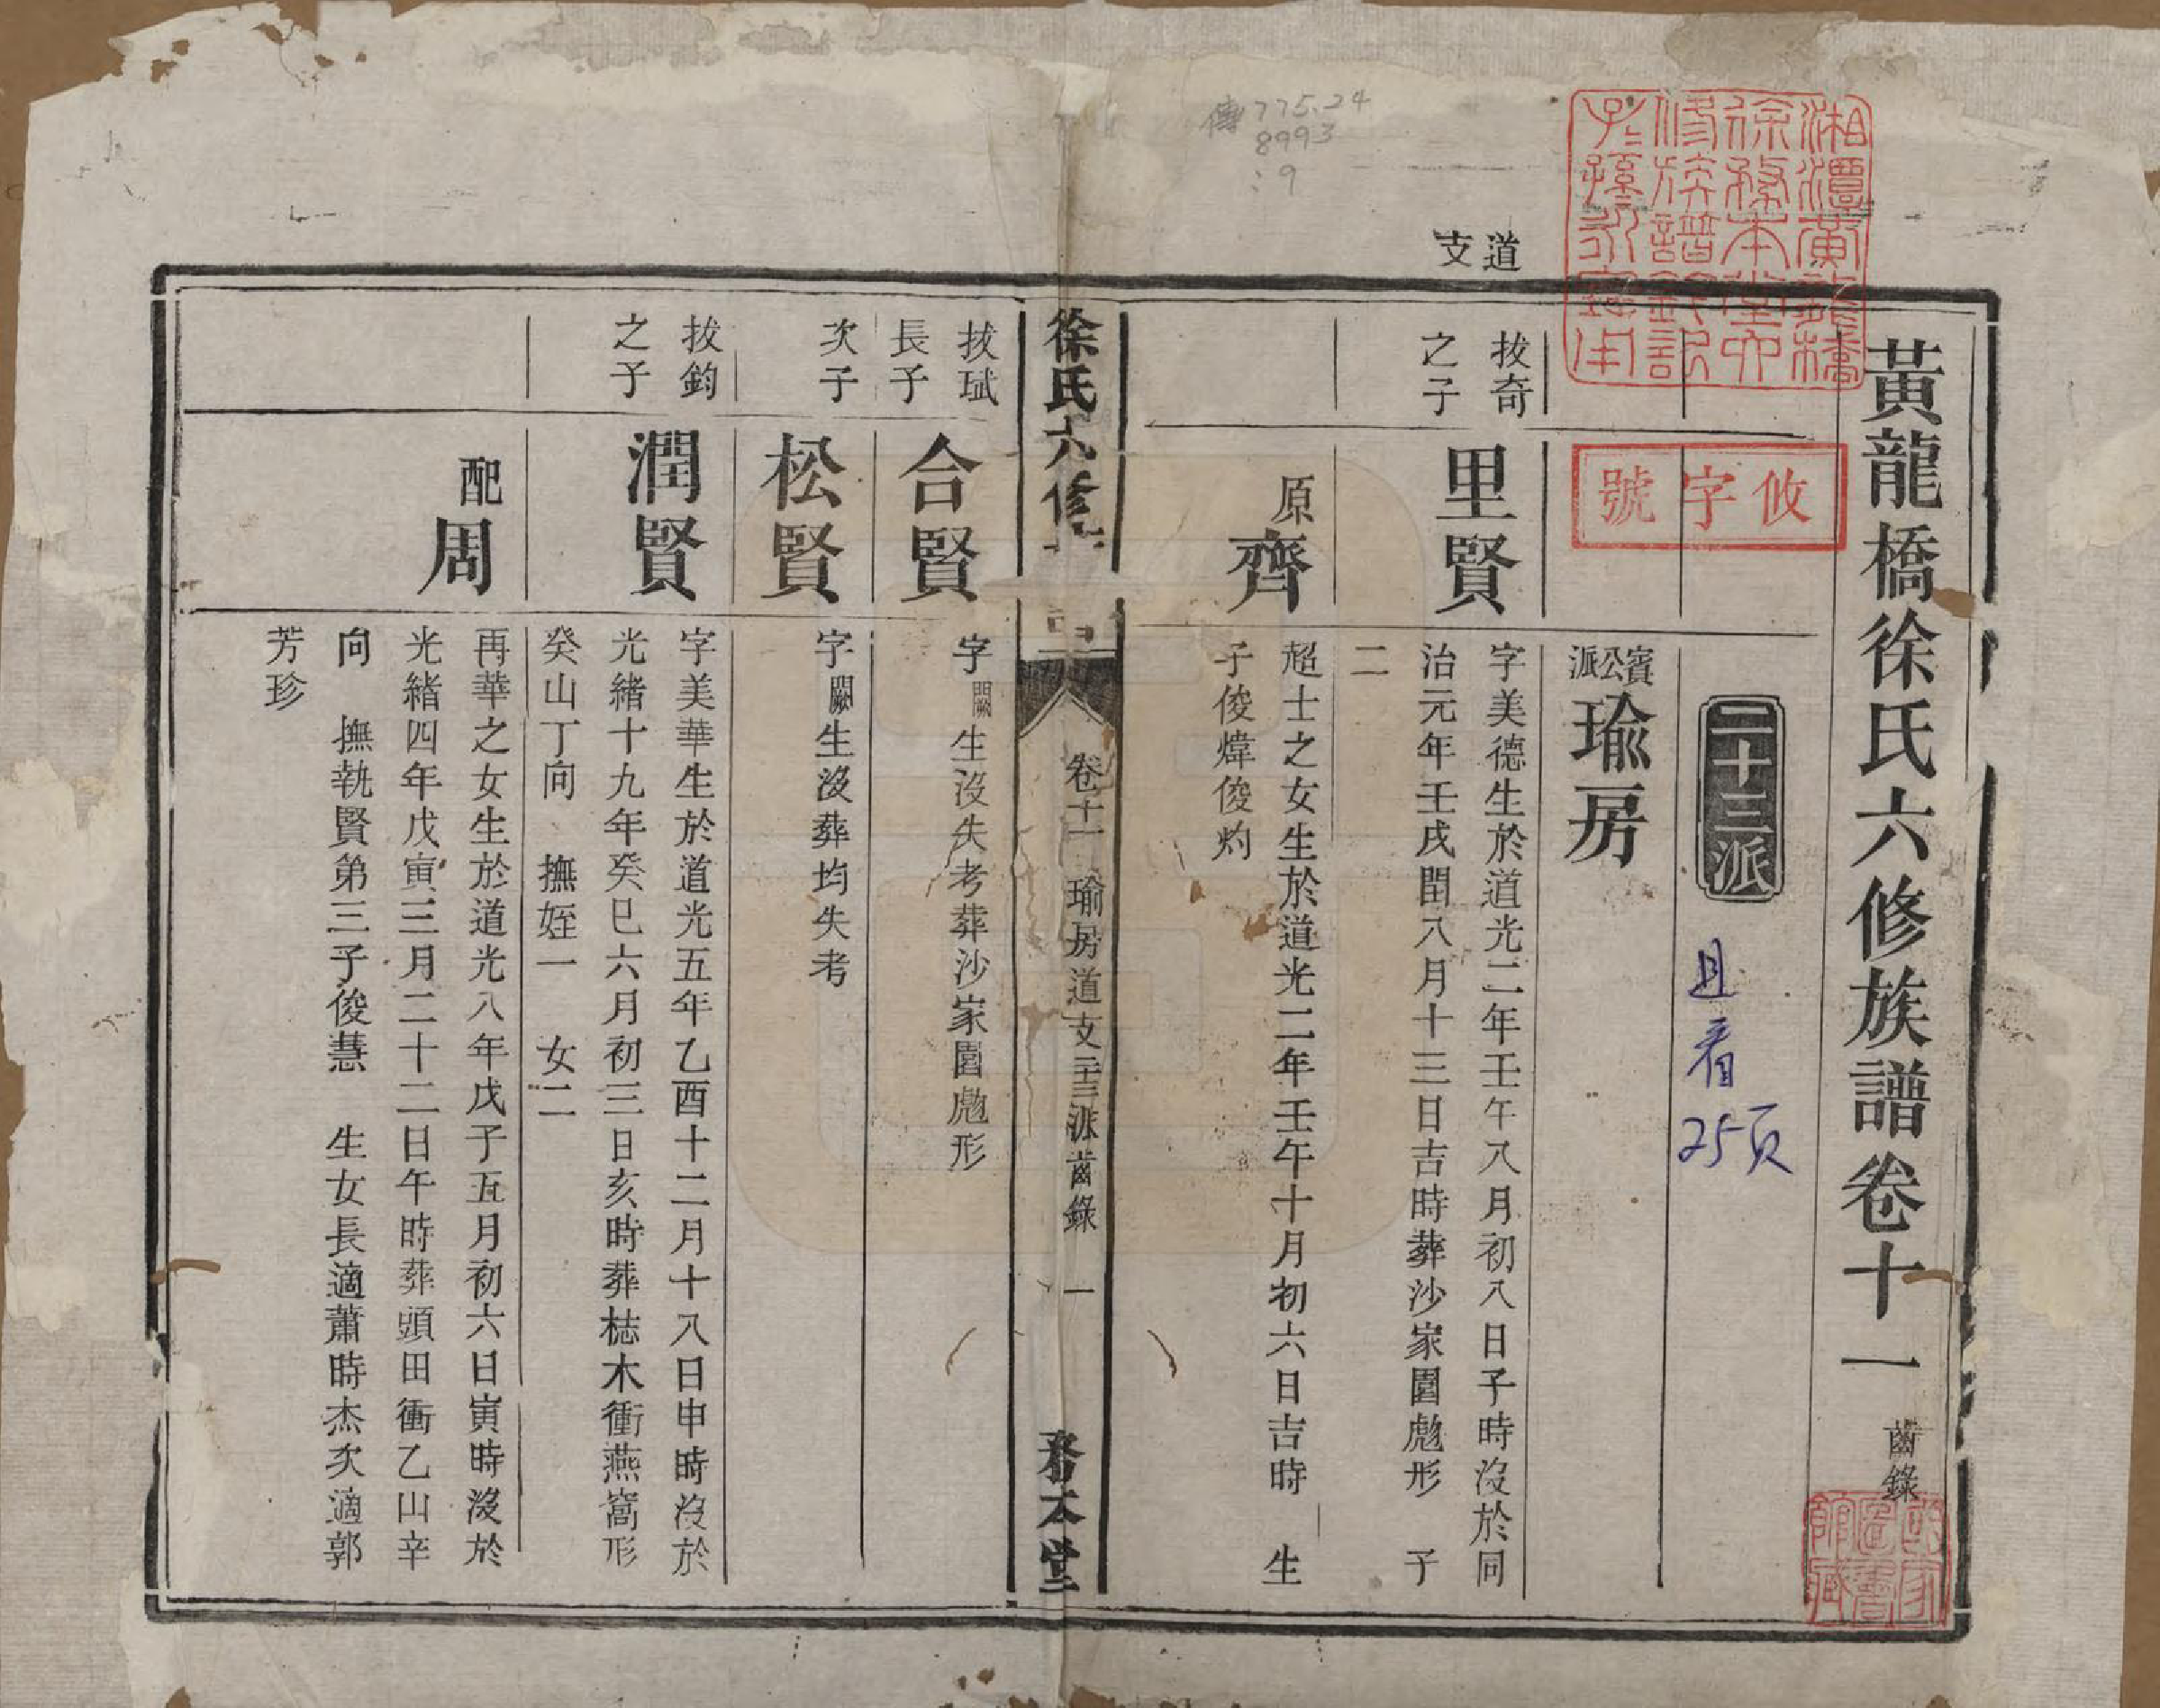 傳775.24
8993
:9
湘潭黃龍橋
徐務本堂六
修族譜鈐記
子孫永寶用
黃龍橋徐氏六修族譜卷十一 齒錄
國家
圖書
館藏
攸字號
二十三派
且看
25页
賓公派
瑜房
道支
拔奇
之子
里賢
字美德生於道光二年壬午八月初八日子時沒於同
治元年壬戌閏八月十三日吉時葬沙家園彪形 子
二
原 齊
超士之女生於道光二年壬午十月初六日吉時 生
子俊煒俊灼
徐氏六修
卷十一 瑜房道支二十三派齒錄 一
務本堂
拔珷
長子
合賢
字闕生沒失考葬沙家園彪形
次子
松賢
字闕生沒葬均失考
拔鈞
之子
潤賢
字美華生於道光五年乙酉十二月十八日申時沒於
光緒十九年癸巳六月初三日亥時葬梽木衝燕窩形
癸山丁向 撫姪一 女二
配 周
再華之女生於道光八年戊子五月初六日寅時沒於
光緒四年戊寅三月二十二日午時葬頭田衝乙山辛
向 撫執賢第三子俊慧 生女長適蕭時杰次適郭
芳珍